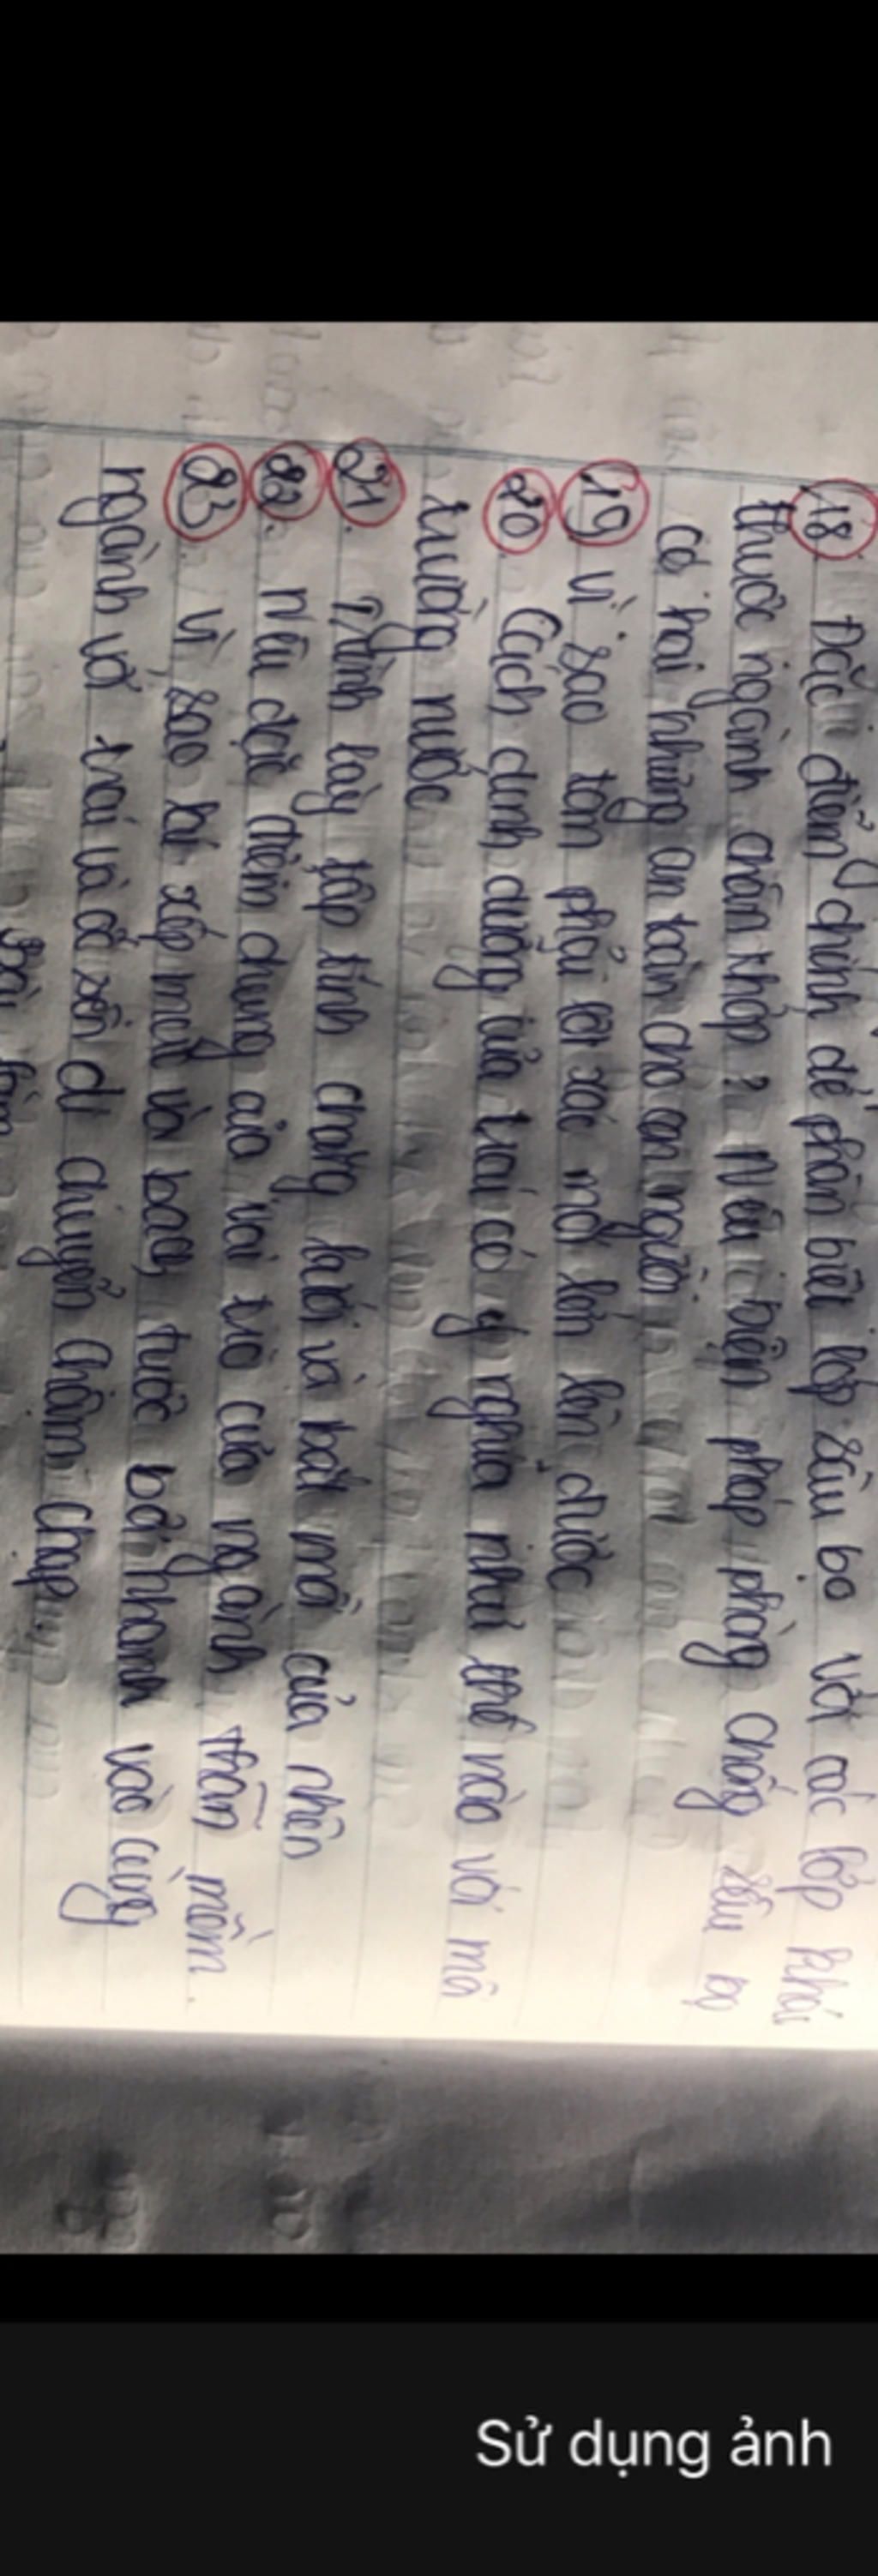 18. Đặc điểm chính để phân biệt lớp sâu bọ với các lớp khác
thuộc ngành chân khớp? Nêu biện pháp phòng chống sâu bọ
có hại nhưng an toàn cho con người.
19 Vì sao tôm phải lột xác mới lớn lên được
20. Cách dinh dưỡng của trai có ý nghĩa như thế nào với môi
trường nước
21. Trình bày tập tính chăng lưới và bắt mồi của nhện
22. Nêu đặc điểm chung của vai trò của ngành thân mềm.
23. Vì sao lại xếp mực và bạch tuộc bơi nhanh vào cùng
ngành với trai và ốc sên di chuyển chậm chạp.
Sử dụng ảnh